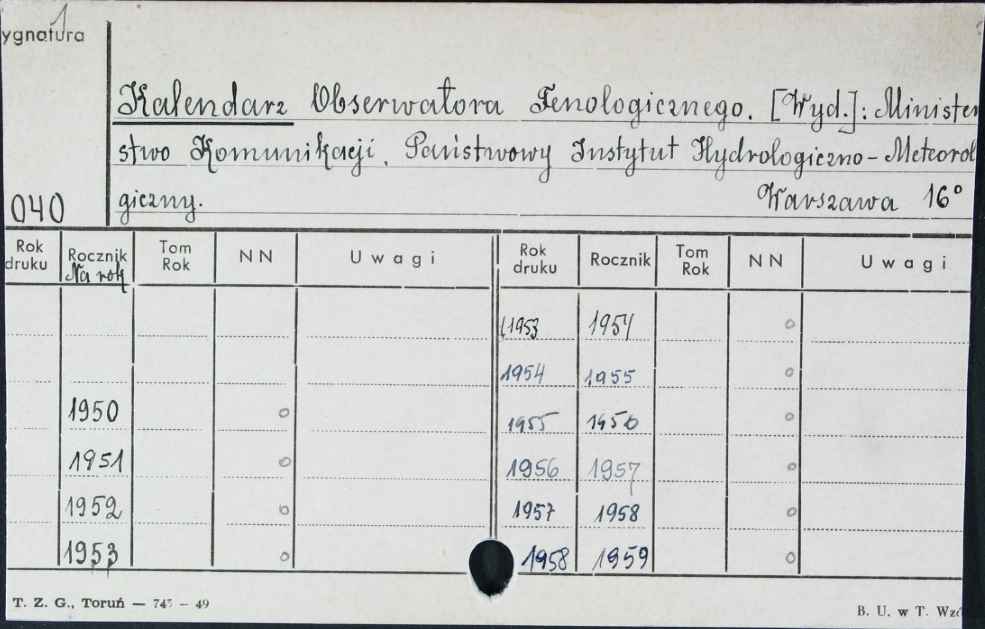 ygnatura
Kalendarz Obserwatora Fenologicznego. [Wyd.]: Minister
stwo Komunikacji. Państwowy Instytut Hydrologiczno-Meteorol
040 giczny. Warszawa 16°
Rok druku Rocznik Na rok Tom Rok NN Uwagi Rok druku Rocznik Tom Rok NN Uwagi
(1953 1954 o
1954 1955 o
1950 o 1955 1956 o
1951 o 1956 1957 o
1952 o 1957 1958 o
1953 o 1958 1959 o
T. Z. G., Toruń — 745 – 49 B. U. w T. Wzó